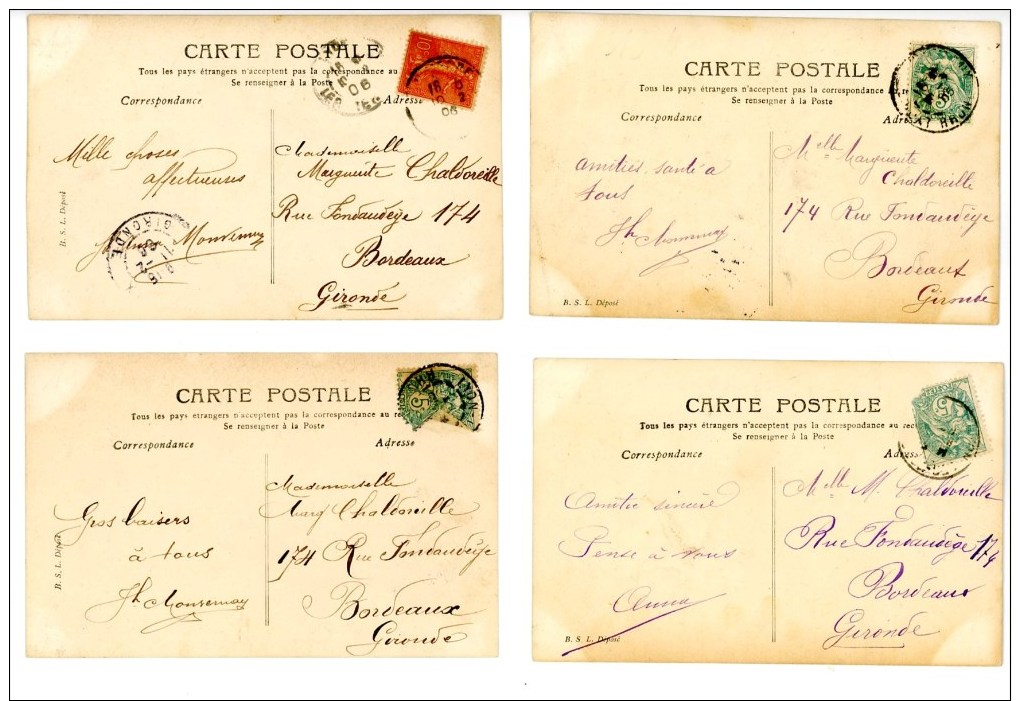 CARTE POSTALE
Tous les pays étrangers n'acceptent pas la correspondance au
Se renseigner à la Poste
Correspondance
Adresse
10
06
06
Mille choses
affectueuses
Mademoiselle
Marguerite Chaldoreille
Rue Fondaudège 174
Bordeaux
Gironde
GIRONDE
B. S. L. Déposé
CARTE POSTALE
Tous les pays étrangers n'acceptent pas la correspondance au
Se renseigner à la Poste
Correspondance
Amitiés, santé à
tous
Melle Marguerite
Chaldoreille
174 Rue Fondaudège
Bordeaux
Gironde
B. S. L. Déposé
CARTE POSTALE
Tous les pays étrangers n'acceptent pas la correspondance au rec
Se renseigner à la Poste
Correspondance
Adresse
5
LYON
Gros baisers
à tous
Mademoiselle
Marg Chaldoreille
174 Rue Fondaudège
Bordeaux
Gironde
B. S. L. Déposé
CARTE POSTALE
Tous les pays étrangers n'acceptent pas la correspondance au rec
Se renseigner à la Poste
Correspondance
5
Amitié sincère
Pense à vous
Anna
Melle M. Chaldoreille
Rue Fondaudège 174
Bordeaux
Gironde
B. S. L. Déposé